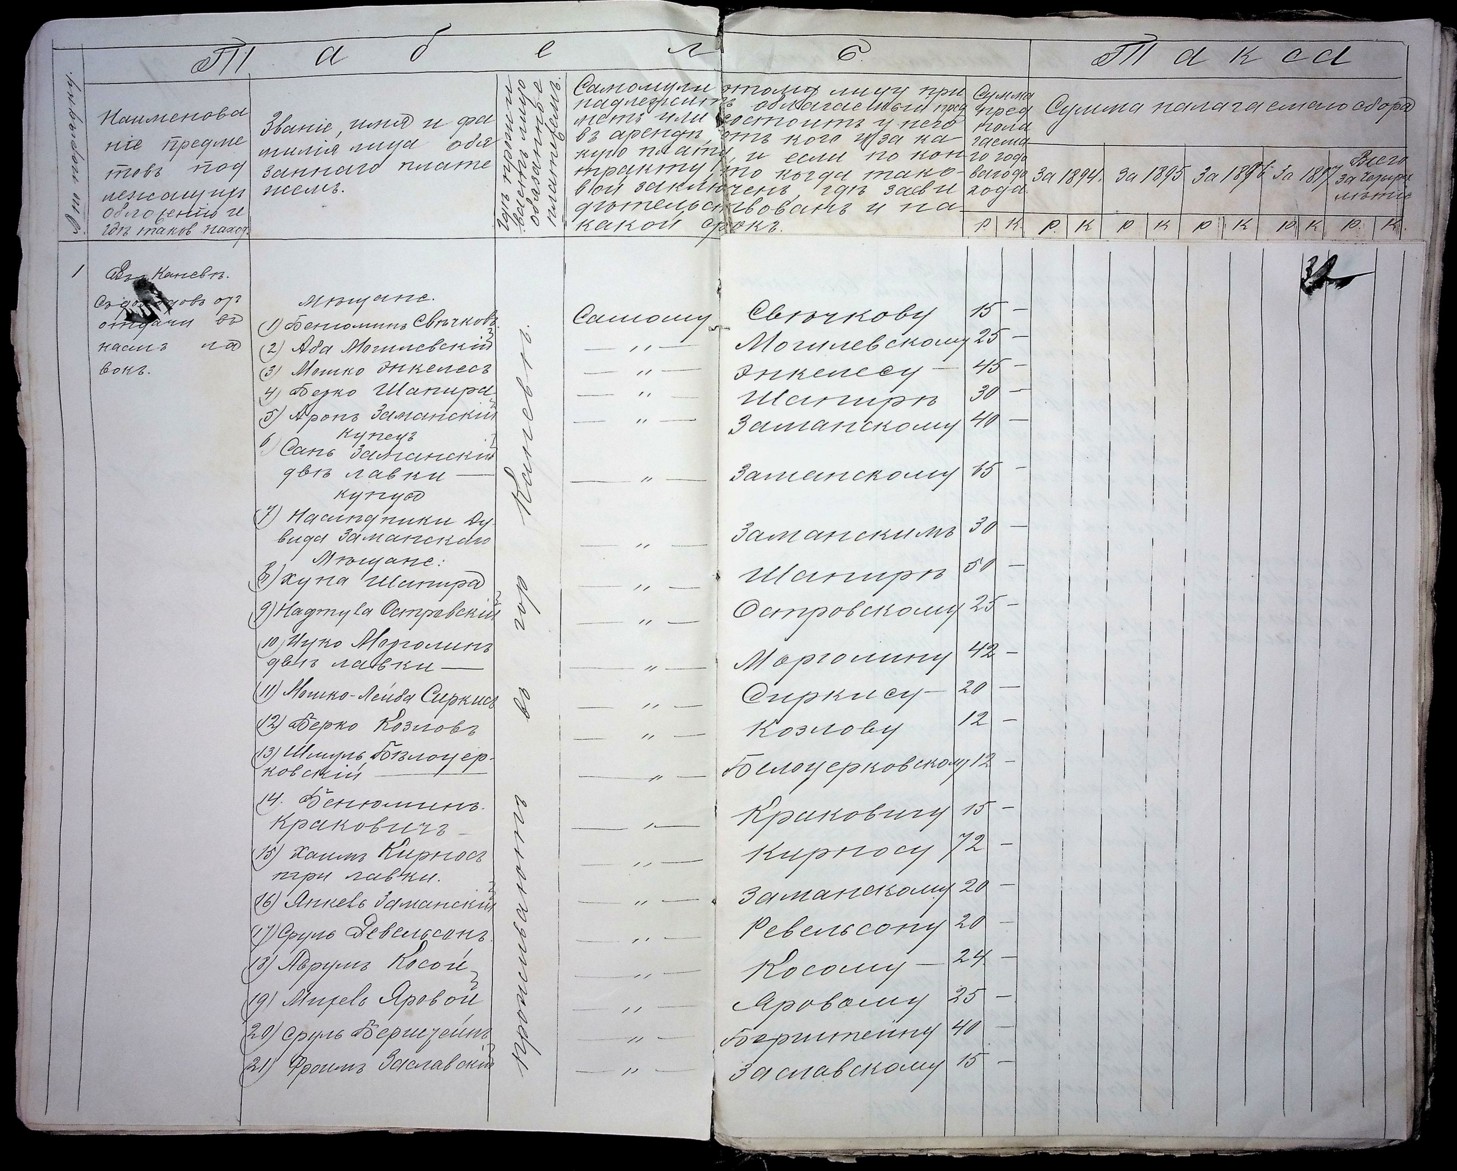 Табель
Такса
Наименова
ніе предме
товъ под
лежащихъ
обложенію и
гдѣ таковъ наход
Званіе, имя и фа
милія лица обя
заннаго плате
жемъ.
Гдѣ прожи
ваетъ лицо
обязанное
платежемъ.
Самому ли этому лицу при
надлежитъ облагаемый пред
метъ или состоитъ у него
въ арендѣ, отъ кого и за ка
кую плату, и если по кон
тракту, то когда тако-
вой заключенъ, гдѣ засви
дѣтельствованъ и на
какой срокъ.
Сумма
пред
пола
гаема
го год
ваго до
хода.
Сумма налагаемаго сбора
За 1894. За 1895 За 1896 За 1897 Всего за четыре
Р К Р К Р К Р К Р К Р К
1 Въ г. Каневѣ.
Съ доходовъ отъ
отдачи въ
наемъ ла
вокъ.
Проживаютъ во гор Каневѣ.
Мѣщане.
1) Беніоминъ Свѣчковъ Самому Свѣчкову 15 –
2) Аба Могилевскій — „ — Могилевскому 25 –
3) Мошко Энкелесъ — „ — Энкелесу — 45 –
4) Берко Шапира — „ — Шапирѣ 30 –
5) Аронъ Заманскій — „ — Заманскому 40 –
купецъ
6) Заманскій
двѣ лавки — — „ — Заманскому 65 –
купцы
7) Наслѣдники Ду
вида Заманскаго — „ — Заманскимъ 30 –
Мѣщане:
8) Хуна Шапира — „ — Шапирѣ 50 –
9) Нафтула Островскій — „ — Островскому 25 –
10) Ицко Марголинъ
двѣ лавки — — „ — Марголину 42 –
11) Мошко-Лейба Сиркисъ — „ — Сиркису — 20 –
12) Берко Козловъ — „ — Козлову 12 –
13) Шмуль Бѣлоцер-
ковскій — — „ — Белоцерковскому 12 –
14. Беніоминъ
Краковичъ — — „ — Краковичу 15 –
15) Хаимъ Кирносъ — „ — Кирносу 72 –
три лавки.
16) Янкель Заманскій — „ — Заманскому 20 –
17) Сруль Ревельсонъ. — „ — Ревельсону 20 –
18) Аврумъ Косой — „ — Косому — 24 –
19) Яровой — „ — Яровому 25 –
20) Сруль Берштейнъ — „ — Берштейну 40 –
21) Фроимъ Заславскій — „ — Заславскому 15 –